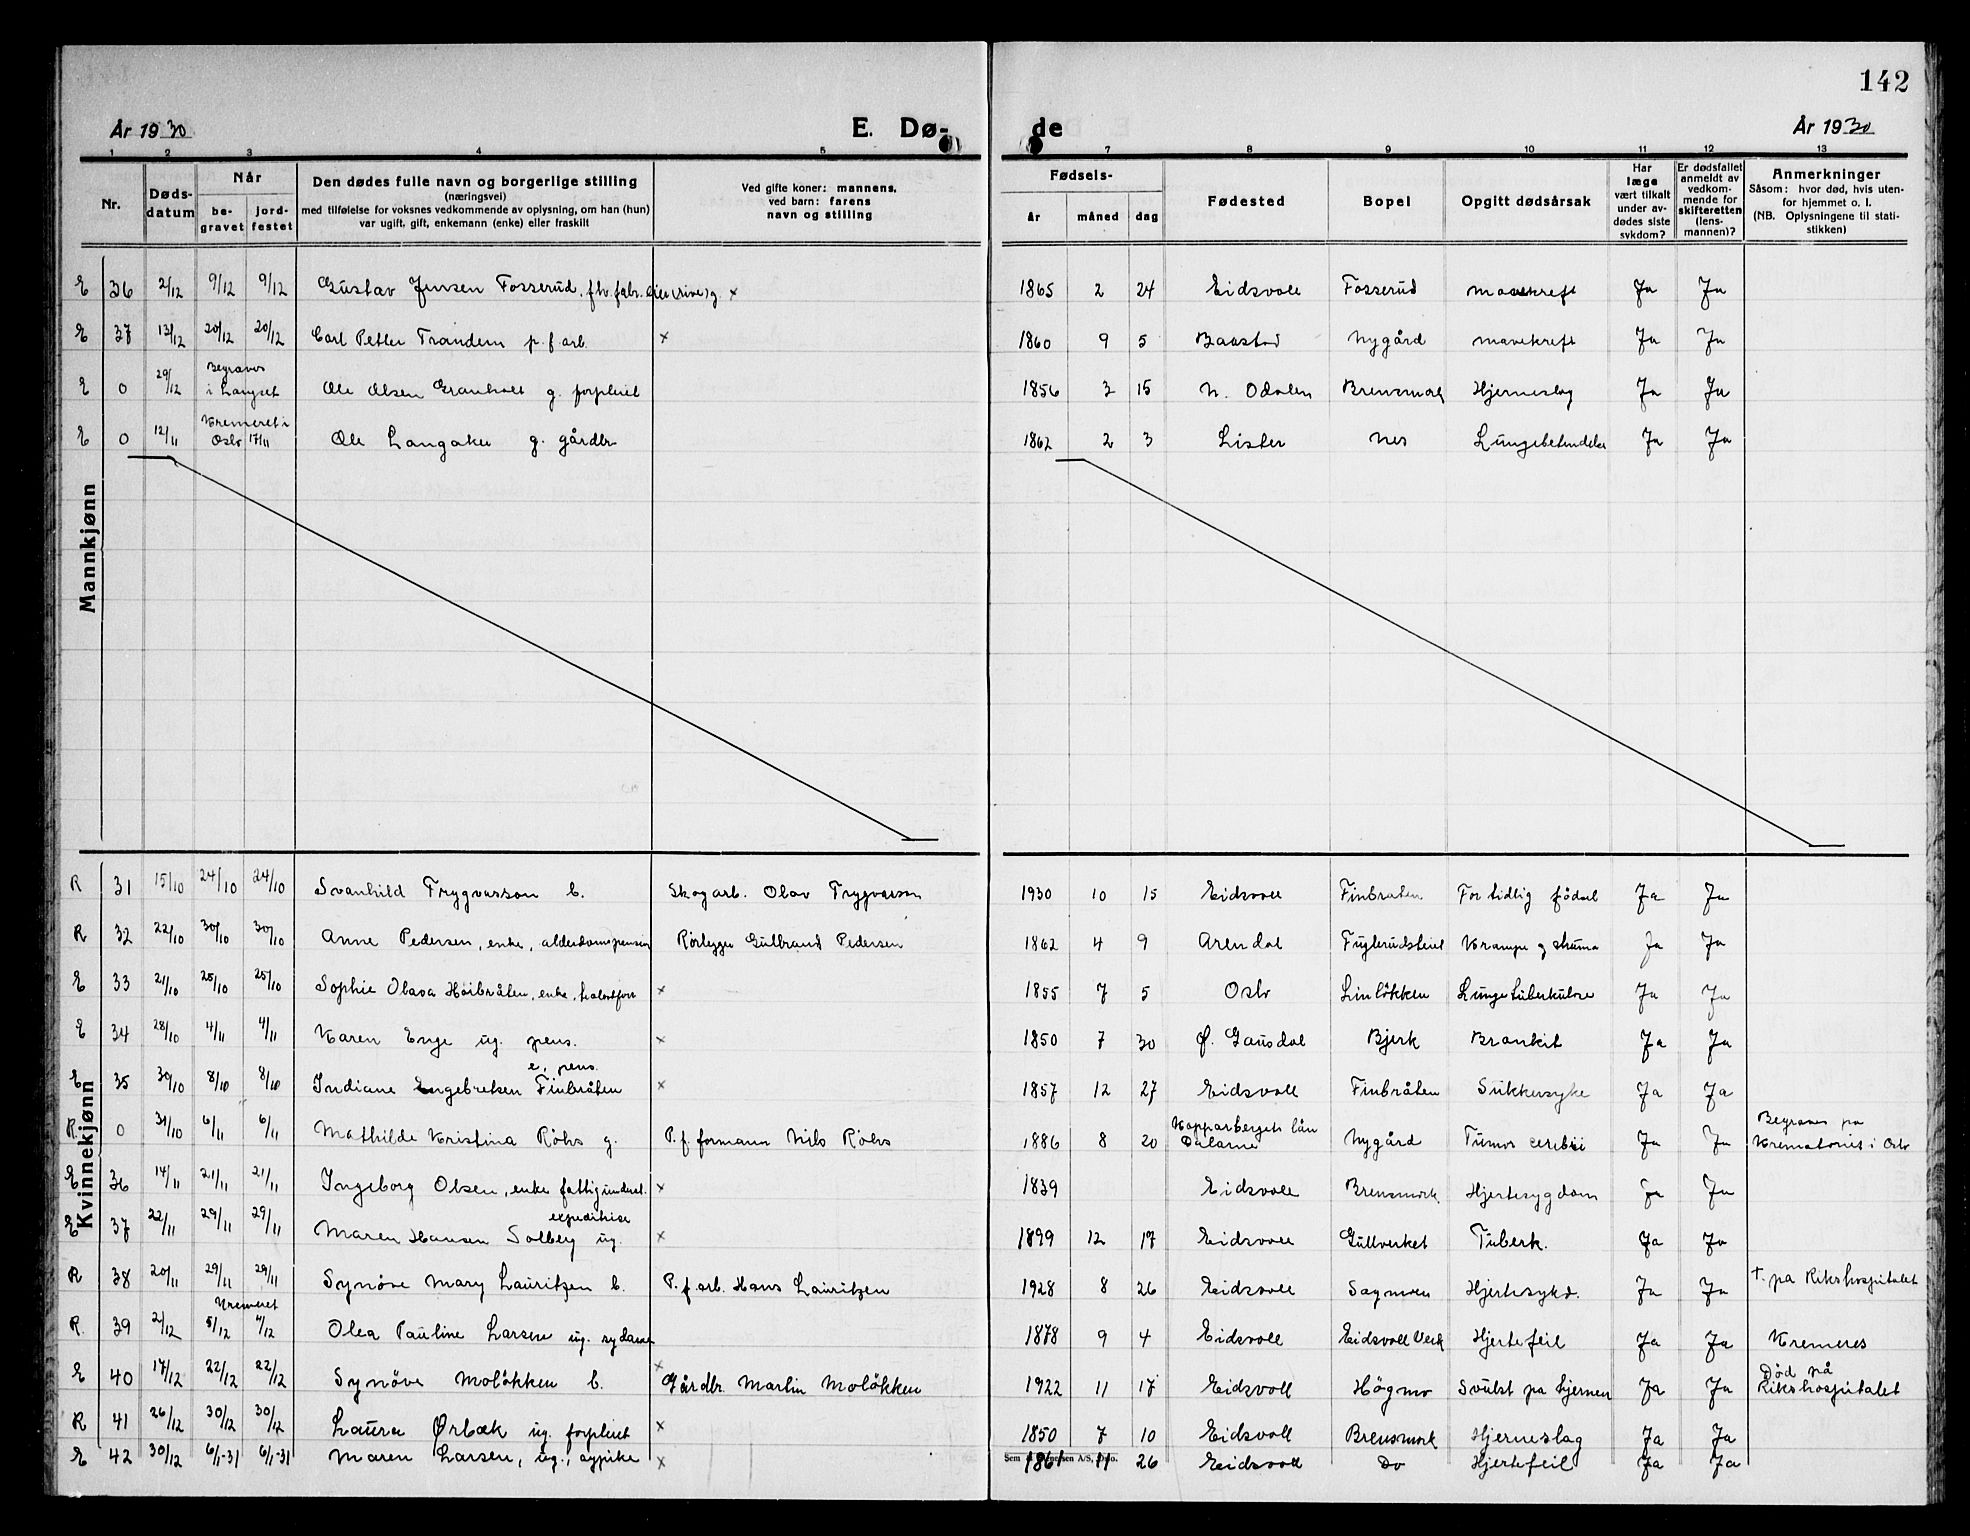 142
År 1930 E. Dø- de År 1930
1 2 3 4 5 7 8 9 10 11 12 13
Nr.
Døds-datum
Når
be-gravet
jord-festet
Den dødes fulle navn og borgerlige stilling
(næringsvei)
med tilføielse for voksnes vedkommende av oplysning, om han (hun)
var ugift, gift, enkemann (enke) eller fraskilt
Ved gifte koner: mannens,
ved barn: farens
navn og stilling
Fødsels-
år måned dag
Fødested
Bopel
Opgitt dødsårsak
Har
læge
vært tilkalt
under av-
dødes siste
sykdom?
Er dødsfallet
anmeldt av
vedkom-
mende for
skifteretten
(lens-
mannen)?
Anmerkninger
Såsom: hvor død, hvis uten-
for hjemmet o. l.
(NB. Oplysningene til stati-
stikken)
Mannkjønn
E 36 2/12 9/12 9/12 Gustav Jensen Fosserud, fhv. fabr. eier (rive) g × 1865 2 24 Eidsvoll Fosserud mavekreft Ja Ja
E 37 13/12 20/12 20/12 Carl Petter Trandem p. f arb. × 1860 9 5 Baastad Nygård mavekreft Ja Ja
E 0 29/12 Begraves i Langset Ole Olsen Granholt g. forpleiet 1856 3 15 N. Odalen Brensmork Hjerneslag Ja Ja
E 0 12/11 Kremeret i Oslo 17/11 Ole Langaker g. gårdbr 1862 2 3 Lister Nes Lungebetendelse Ja Ja
Kvinnekjønn
R 31 15/10 24/10 24/10 Svanhild Trygvasson b. Skogarb. Olav Trygvasson 1930 10 15 Eidsvoll Finbraten For tidlig födsel Ja Ja
R 32 22/10 30/10 30/10 Anne Pedersen, enke, alderdomspensjon Rörlegger Gulbrand Pedersen 1862 4 9 Arendal Fuglerudsteiet Krampe g struma Ja Ja
E 33 21/10 25/10 25/10 Sophie Olava Höibråten, enke, × 1855 7 5 Oslo Linlökken Lungetuberkulose Ja Ja
E 34 28/10 4/11 4/11 Karen Enge ug. pens. × 1850 7 30 Ø. Gausdal Bjerk Bronkit Ja Ja
E 35 30/10 8/10 8/10 Indiane Engebretsen Finbråten e, pens. × 1857 12 27 Eidsvoll Finbråten Sukkersyke Ja Ja
R. 0 31/10 6/11 6/11 Mathilde Kristina Röhs g. P. f. formann Nils Röhs 1886 8 20 Kopparbergets län Dalarne Nygård Tumor cerebri Ja Ja Begraves pa Krematoriet i Oslo
E 36 14/11 21/11 21/11 Ingeborg Olsen, enke fattigunderst. × 1839 Eidsvoll Brensmork. Hjertesygdom Ja Ja
E 37 22/11 29/11 29/11 Maren Hansen Solberg ug. expeditrise × 1899 12 17 Eidsvoll Gullverket Tuberk. Ja Ja
R 38 20/11 29/11 29/11 Synöve Mary Lauritzen b. P. f. arb. Hans Lauritzen 1928 8 26 Eidsvoll Sagmoen Hjertesykd. Ja Ja †. pa Rikshospitalet
R. 39 2/12 Kremeret 5/12 4/12 Olea Pauline Larsen ug. sydame × 1878 9 4 Eidsvoll Eidsvoll Verk Hjertefeil Ja Ja Kremeres
E 40 17/12 22/12 22/12 Synöve Molökken b. Gårdbr. Martin Molökken 1922 11 17 Eidsvoll Högmo Svulst pa hjernen Ja Ja Död på Rikshospitalet
R 41 26/12 30/12 30/12 Laura Ørbæk ug. forpleiet × 1850 7 10 Eidsvoll Brensmork Hjerneslag Ja Ja
E 42 30/12 6/1-31 6/1-31 Maren Larsen, ug., sypike × 1861 11 26 Eidsvoll Do Hjertefeil Ja Ja